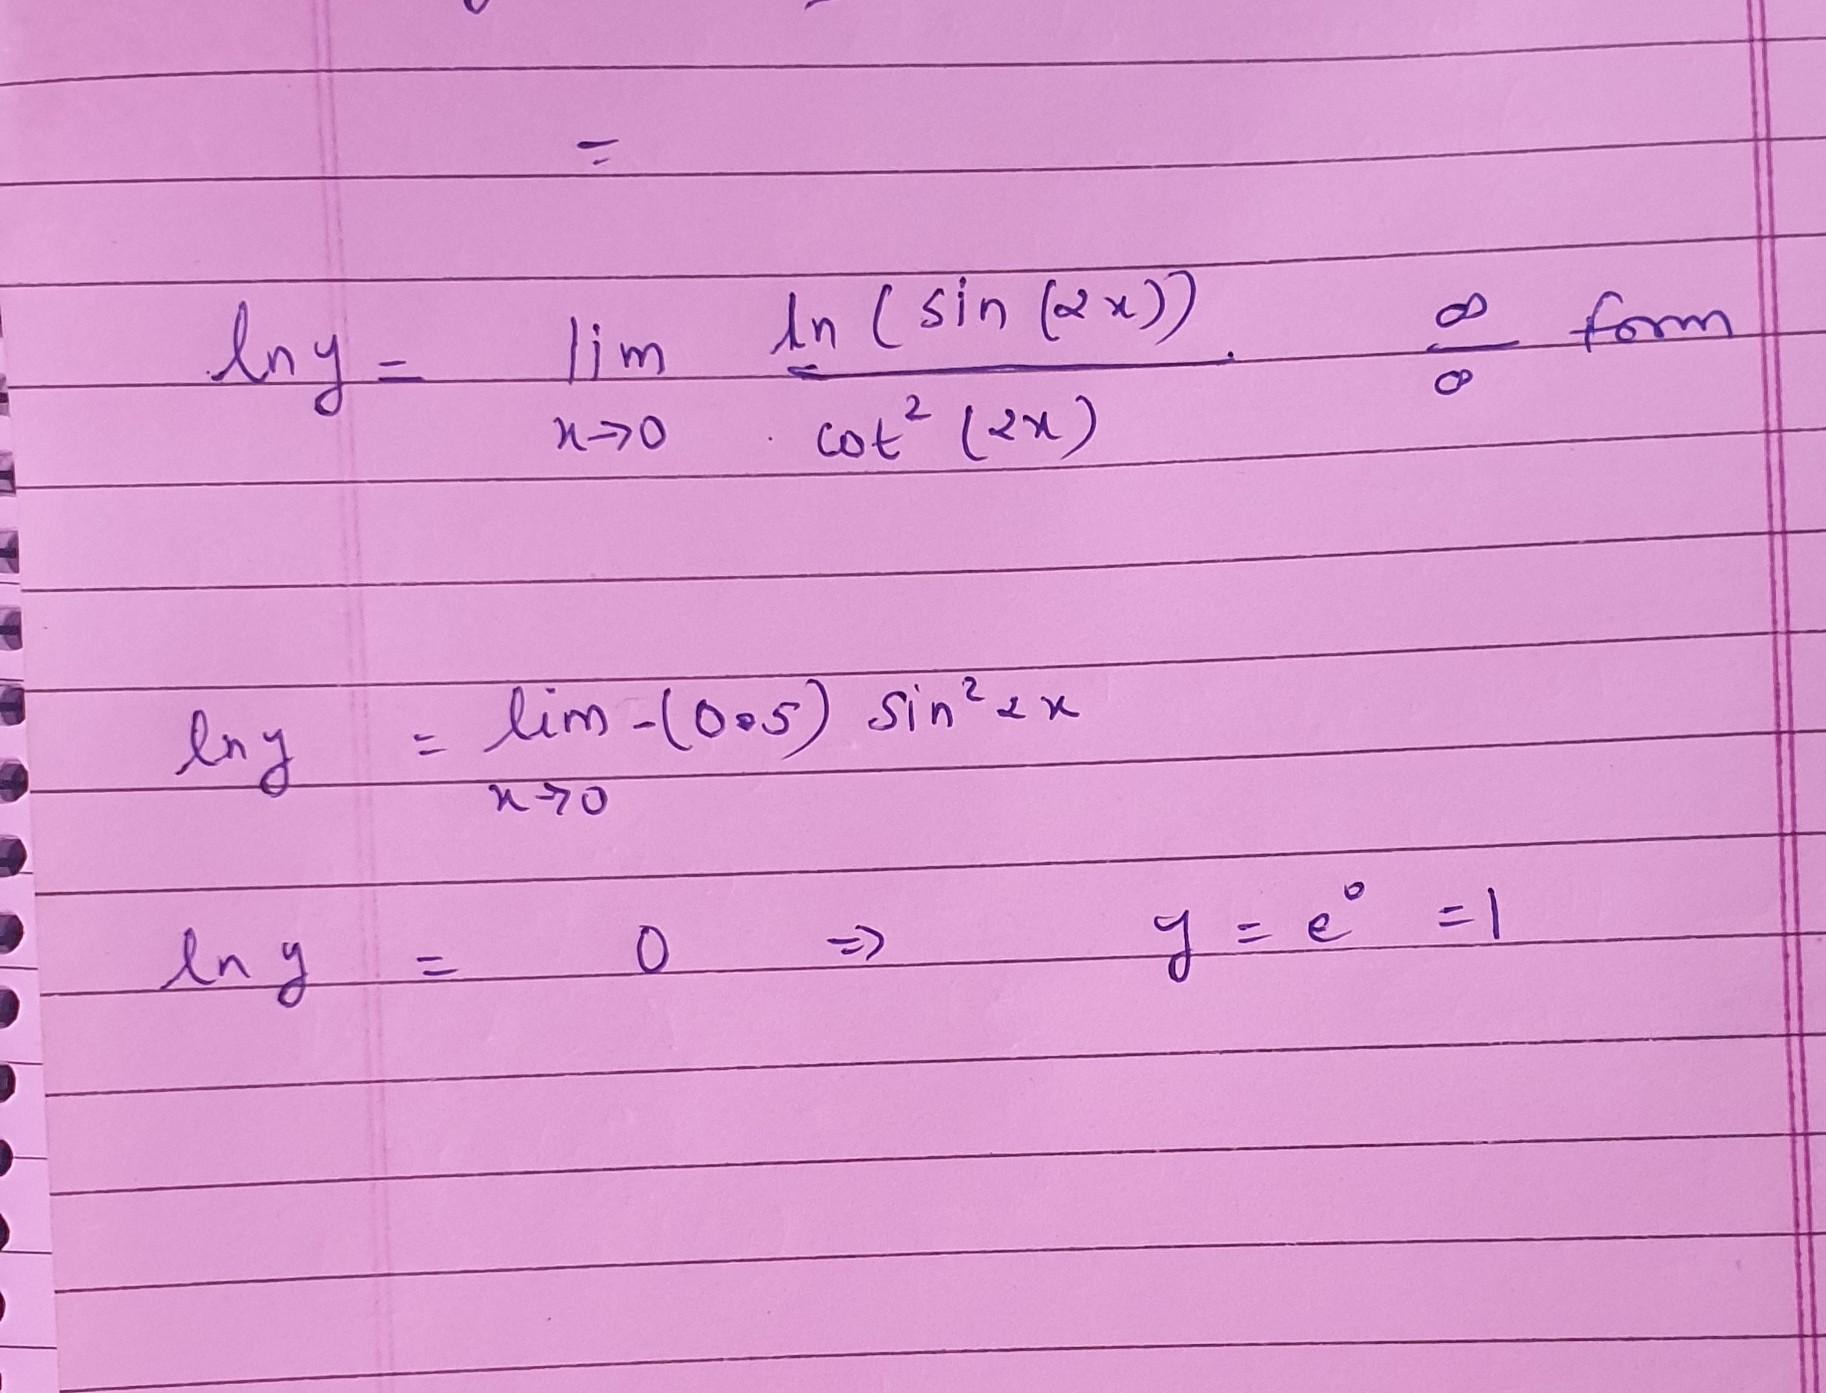 =
ln y = lim x→0 ln (sin (2x)) / cot² (2x) ∞/∞ form
ln y = lim x→0 -(0.5) sin² 2x
ln y = 0 ⇒ y = e⁰ = 1